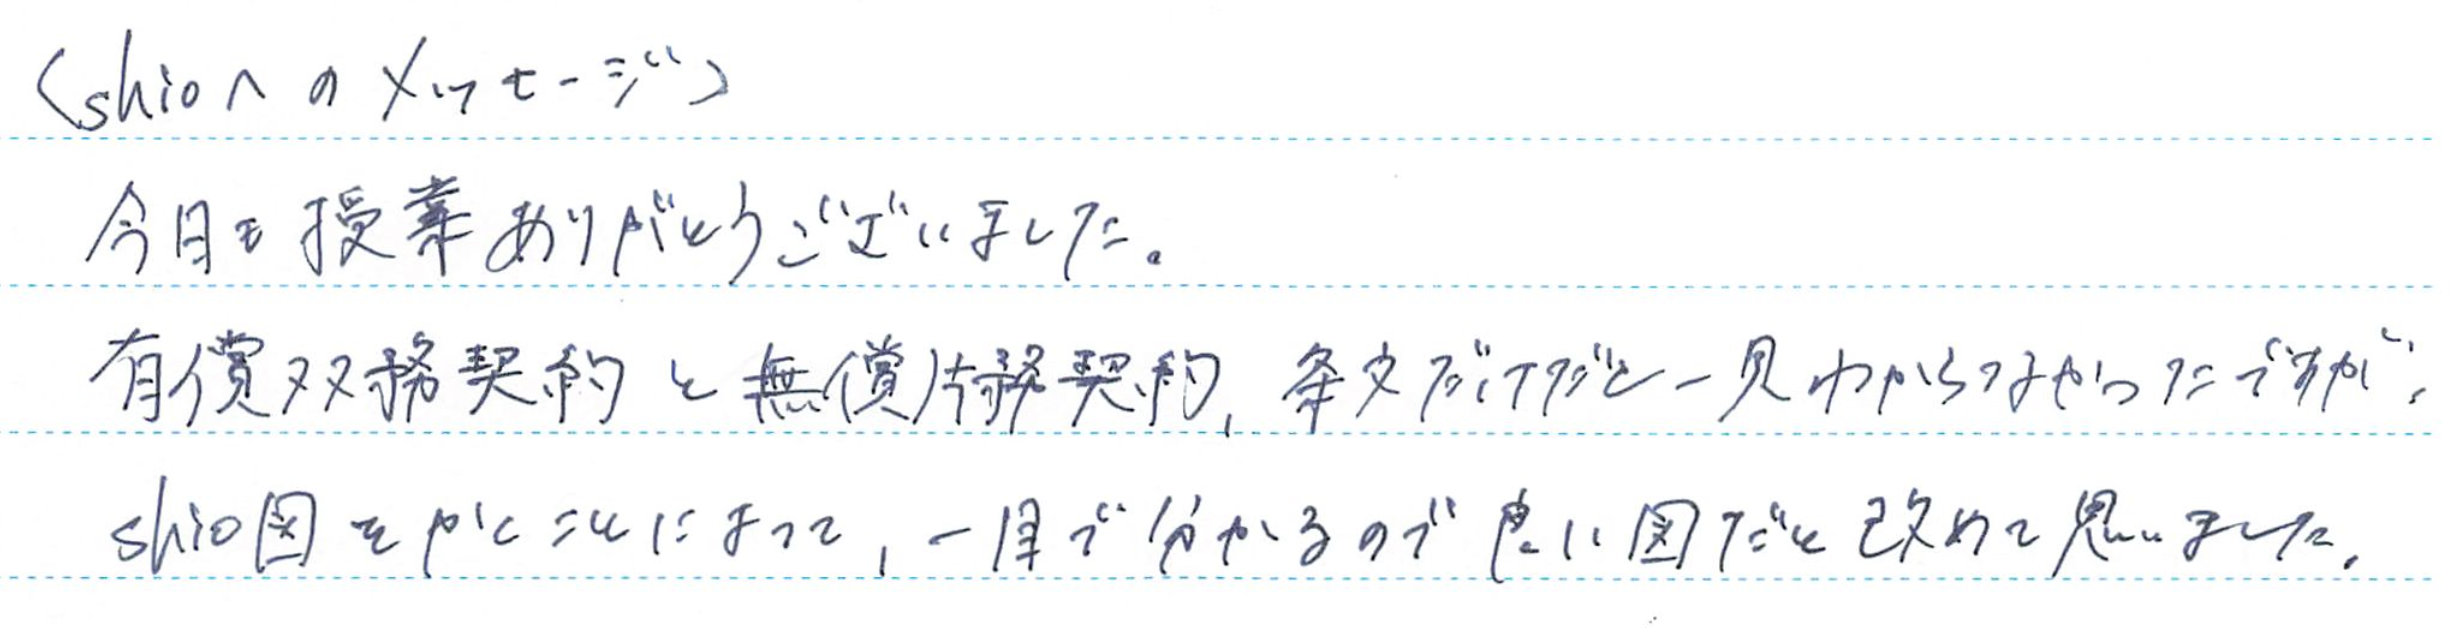 〈shioへのメッセージ〉
今日も授業ありがとうございました。
有償双務契約と無償片務契約、条文だけだと一見わからなかったですが、
shio図をかくことによって、一目で分かるので良い図だと改めて思いました。